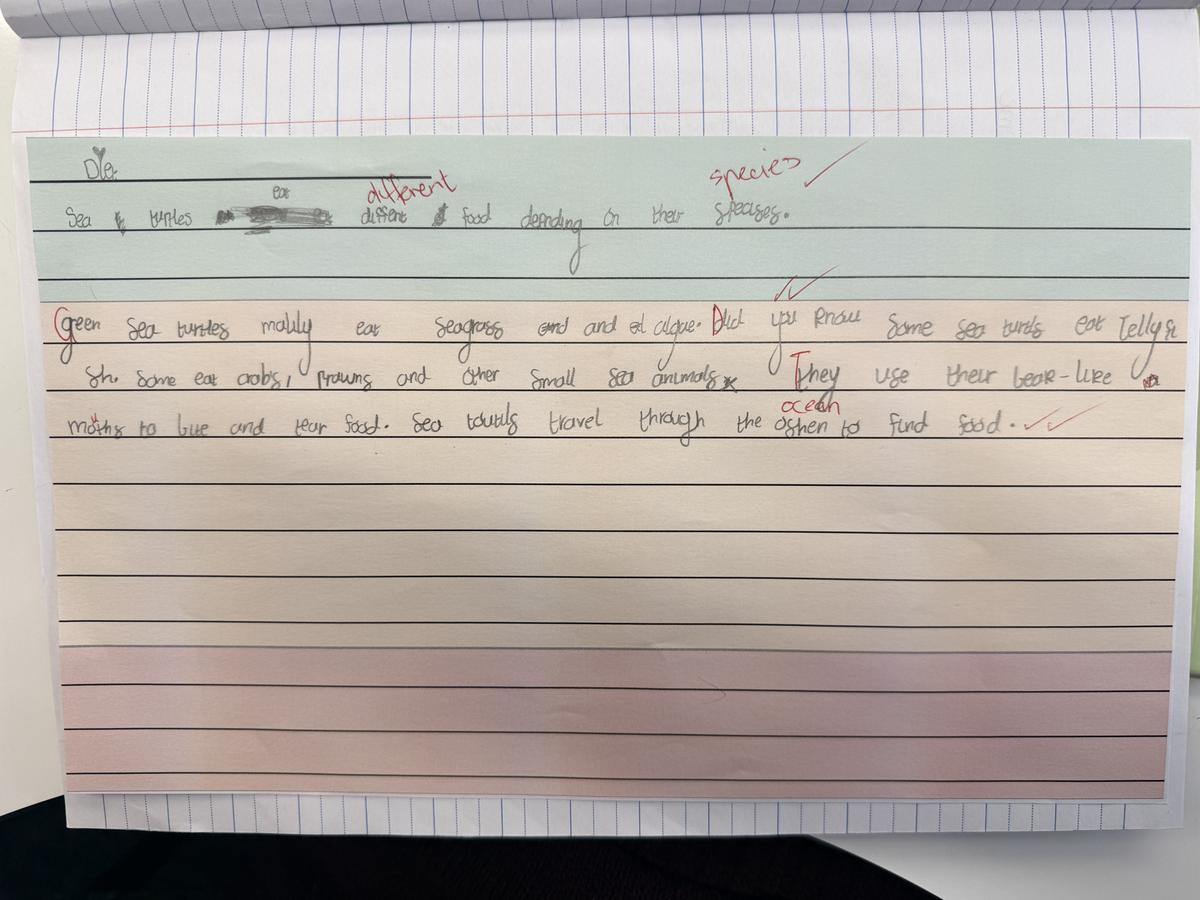 Diet
species
eat different
Sea turtles diffent food depnding on their speases.
Green Sea turtles mainly eat seagrass and and algae. Did you know Some sea turtls eat Jellyfi
Sh. Some eat crabs, Prawns and other Small Sea animals. They use their beak-like
ocean
moths to bite and tear food. Sea toutils travel through the oshen to find food.